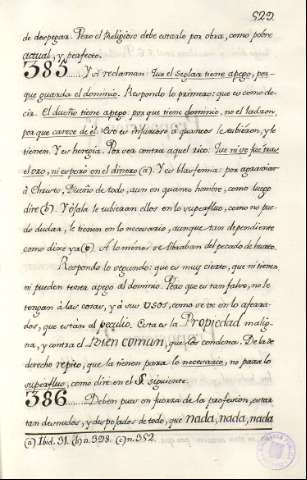 529.
de despegar. Pero el Religioso debe estarlo por obra, como pobre
actual, y perfecto.
385..... Y si reclaman: Que el seglar tiene apego, por-
que guarda el dominio. Respondo lo primero: que es como de-
cir. El dueño tiene apego por que tiene dominio, no el ladron,
por que carece de él. Esto es injurioso á quantos le tubieron, y le
tienen. Y es heregia. Por eso contra aquel rico: Que ni ve
el oro, ni esperó en el dinero (a). Y es blasfemia: por agraviar
á Christo, Dueño de todo, aun en quanto hombre, como luego
dire (b). Y ojala le tubieran ellos en lo superfluo, como no pue-
do dudar, le tienen en lo necesario, aunque tan dependiente
como dire ya (c). A lo menos se librarian del pecado de hurto.
Respondo lo segundo: que es muy cierto, que ni tienen
ni pueden tener apego al dominio. Pero que es tan falso, no le
tengan á las cosas, y á sus usos, como se ve en lo aferra-
dos, que están al peculio. Esta es la Propiedad malig-
na, y contra el Bien comun, que los condena. De la de
derecho repito, que la tienen para lo necesario, no para lo
superfluo, como dire en el § siguiente.
386..... Deben pues en fuerza de la profesion, estar
tan desnudos, y despojados de todo, que nada, nada, nada
(a) Ibid. 31. (b) n. 398. (c) n. 352.